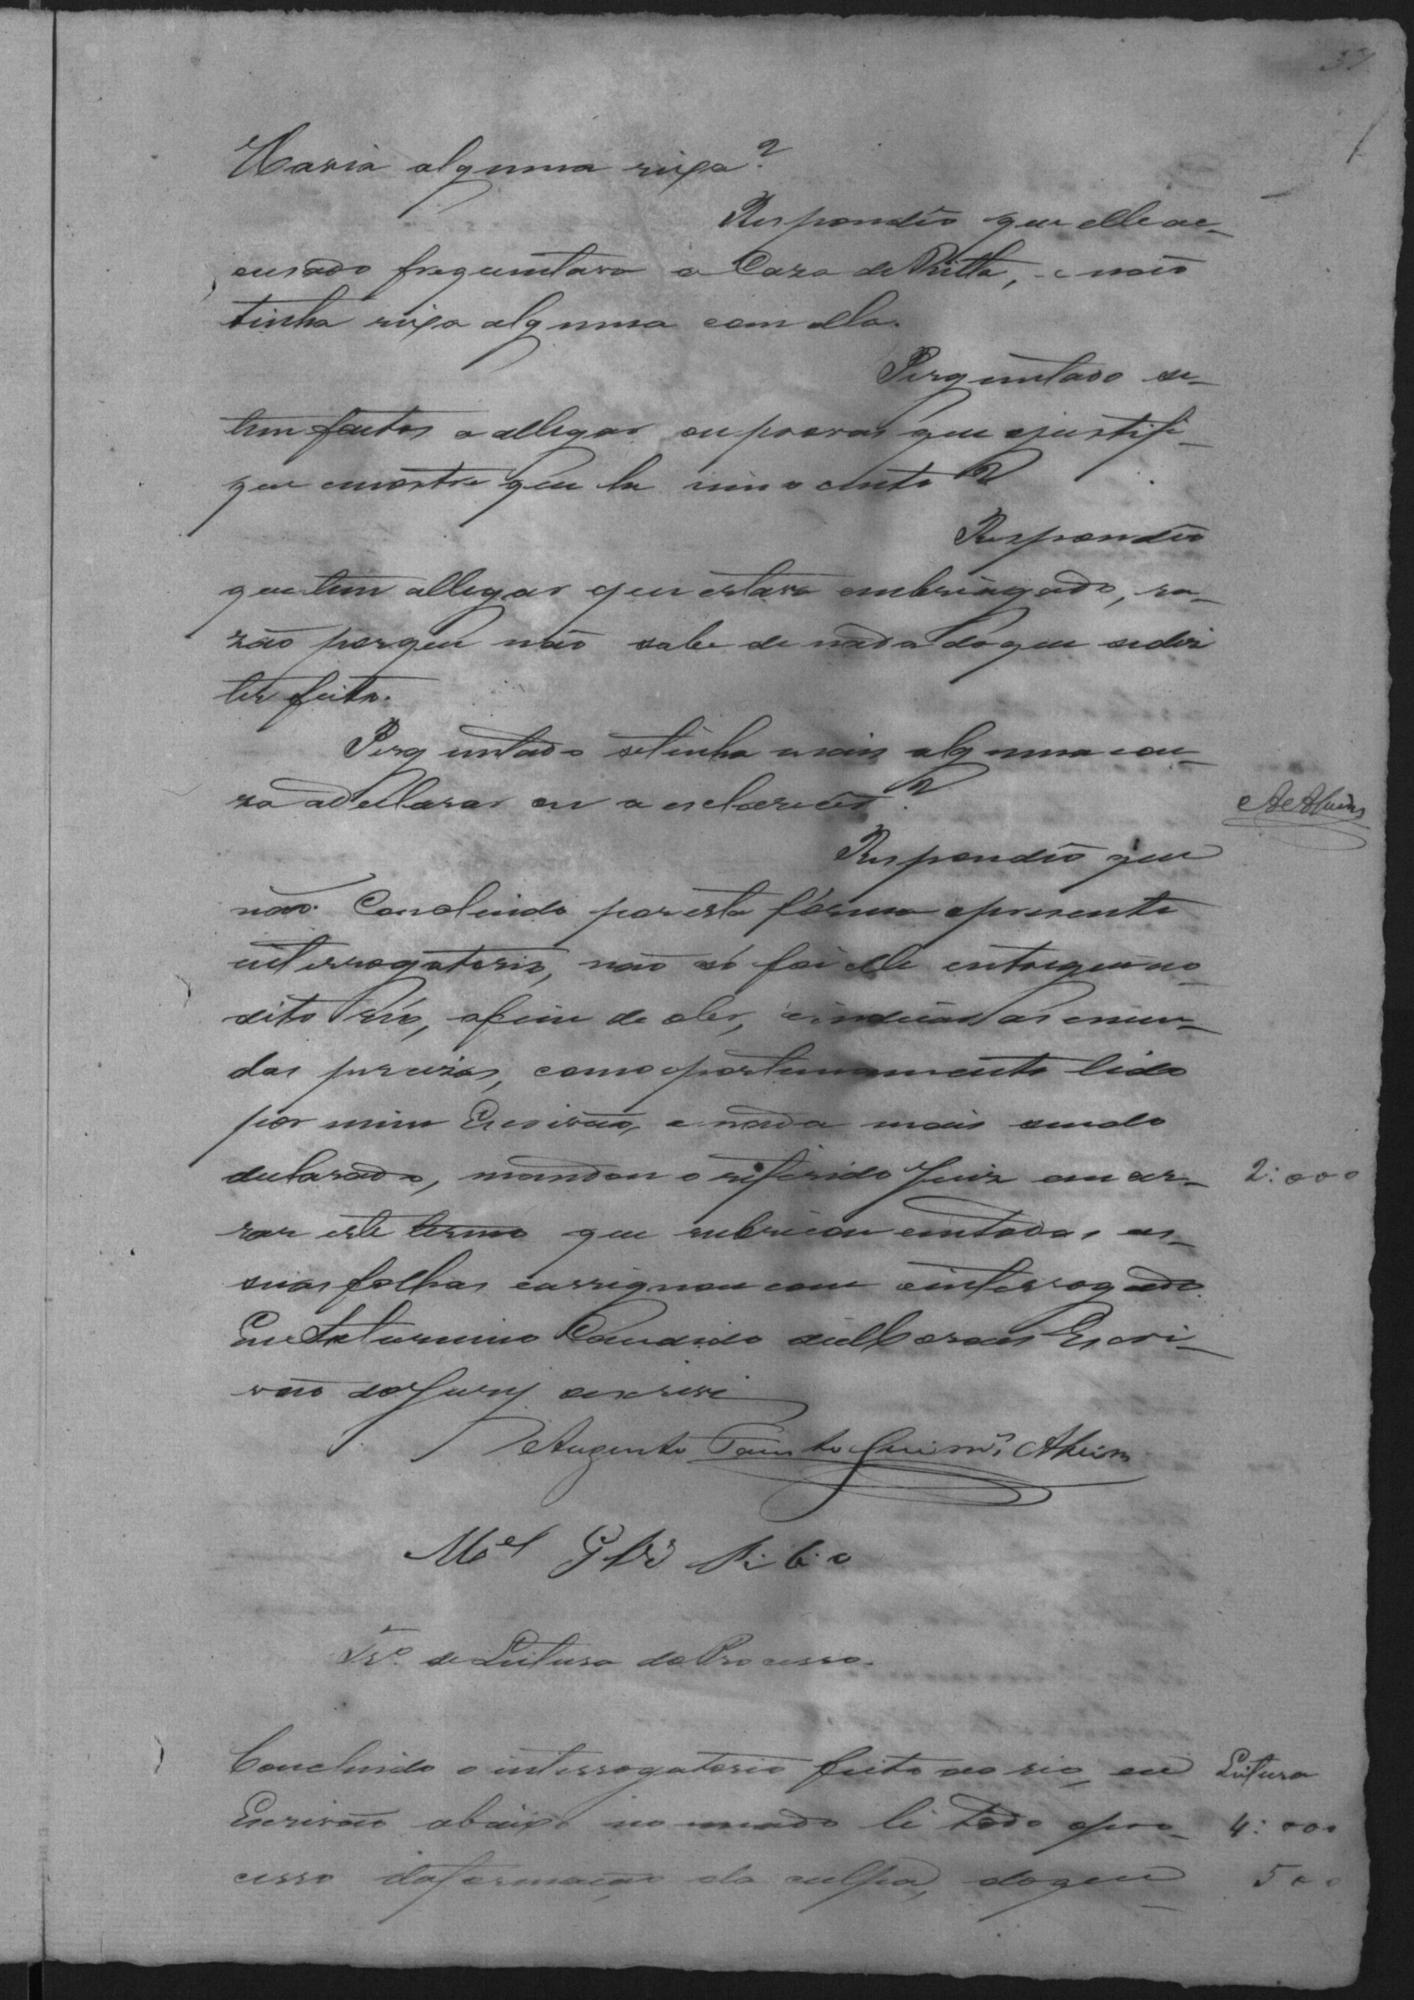 37
Havia alguma rixa?
Respondêo que elle ac-
cusado frequentava a Caza de Ritta, e não
tinha rixa alguma com ella.
Perguntado se
tem factos a allegar ou provas que o justifi-
que e mostre que he innocente?
Respondêo
que tem allegar que estava embriagado, ra-
zão porque não sabe de nada do que se diz
ter feito.
Perguntado se tinha mais alguma cou-
za a declarar ou a esclarecer?
Respondêo que
não. Concluido por esta fórma o presente
interrogatorio, não só foi elle entregue ao
dito Réo, afim de o ler, e indicar as emen-
das precizas, como opportunamente lido
por mim Escrivão, e nada mais sendo
declarado, mandou o referido Juiz encer-
2:000
rar este termo que rubricou em todas as
suas folhas e assignou com o interrogado
Eu Saturnino Candido de Moraes Escri-
vão do Jury escrevi
Augusto Fausto Guim.es
M.el
Tr.o de Leitura do Processo.
Concluido o interrogatorio feito ao reo, eu
Leitura
Escrivão abaixo nomeado li todo o pro-
4:000
cesso da formação da culpa, do que
500